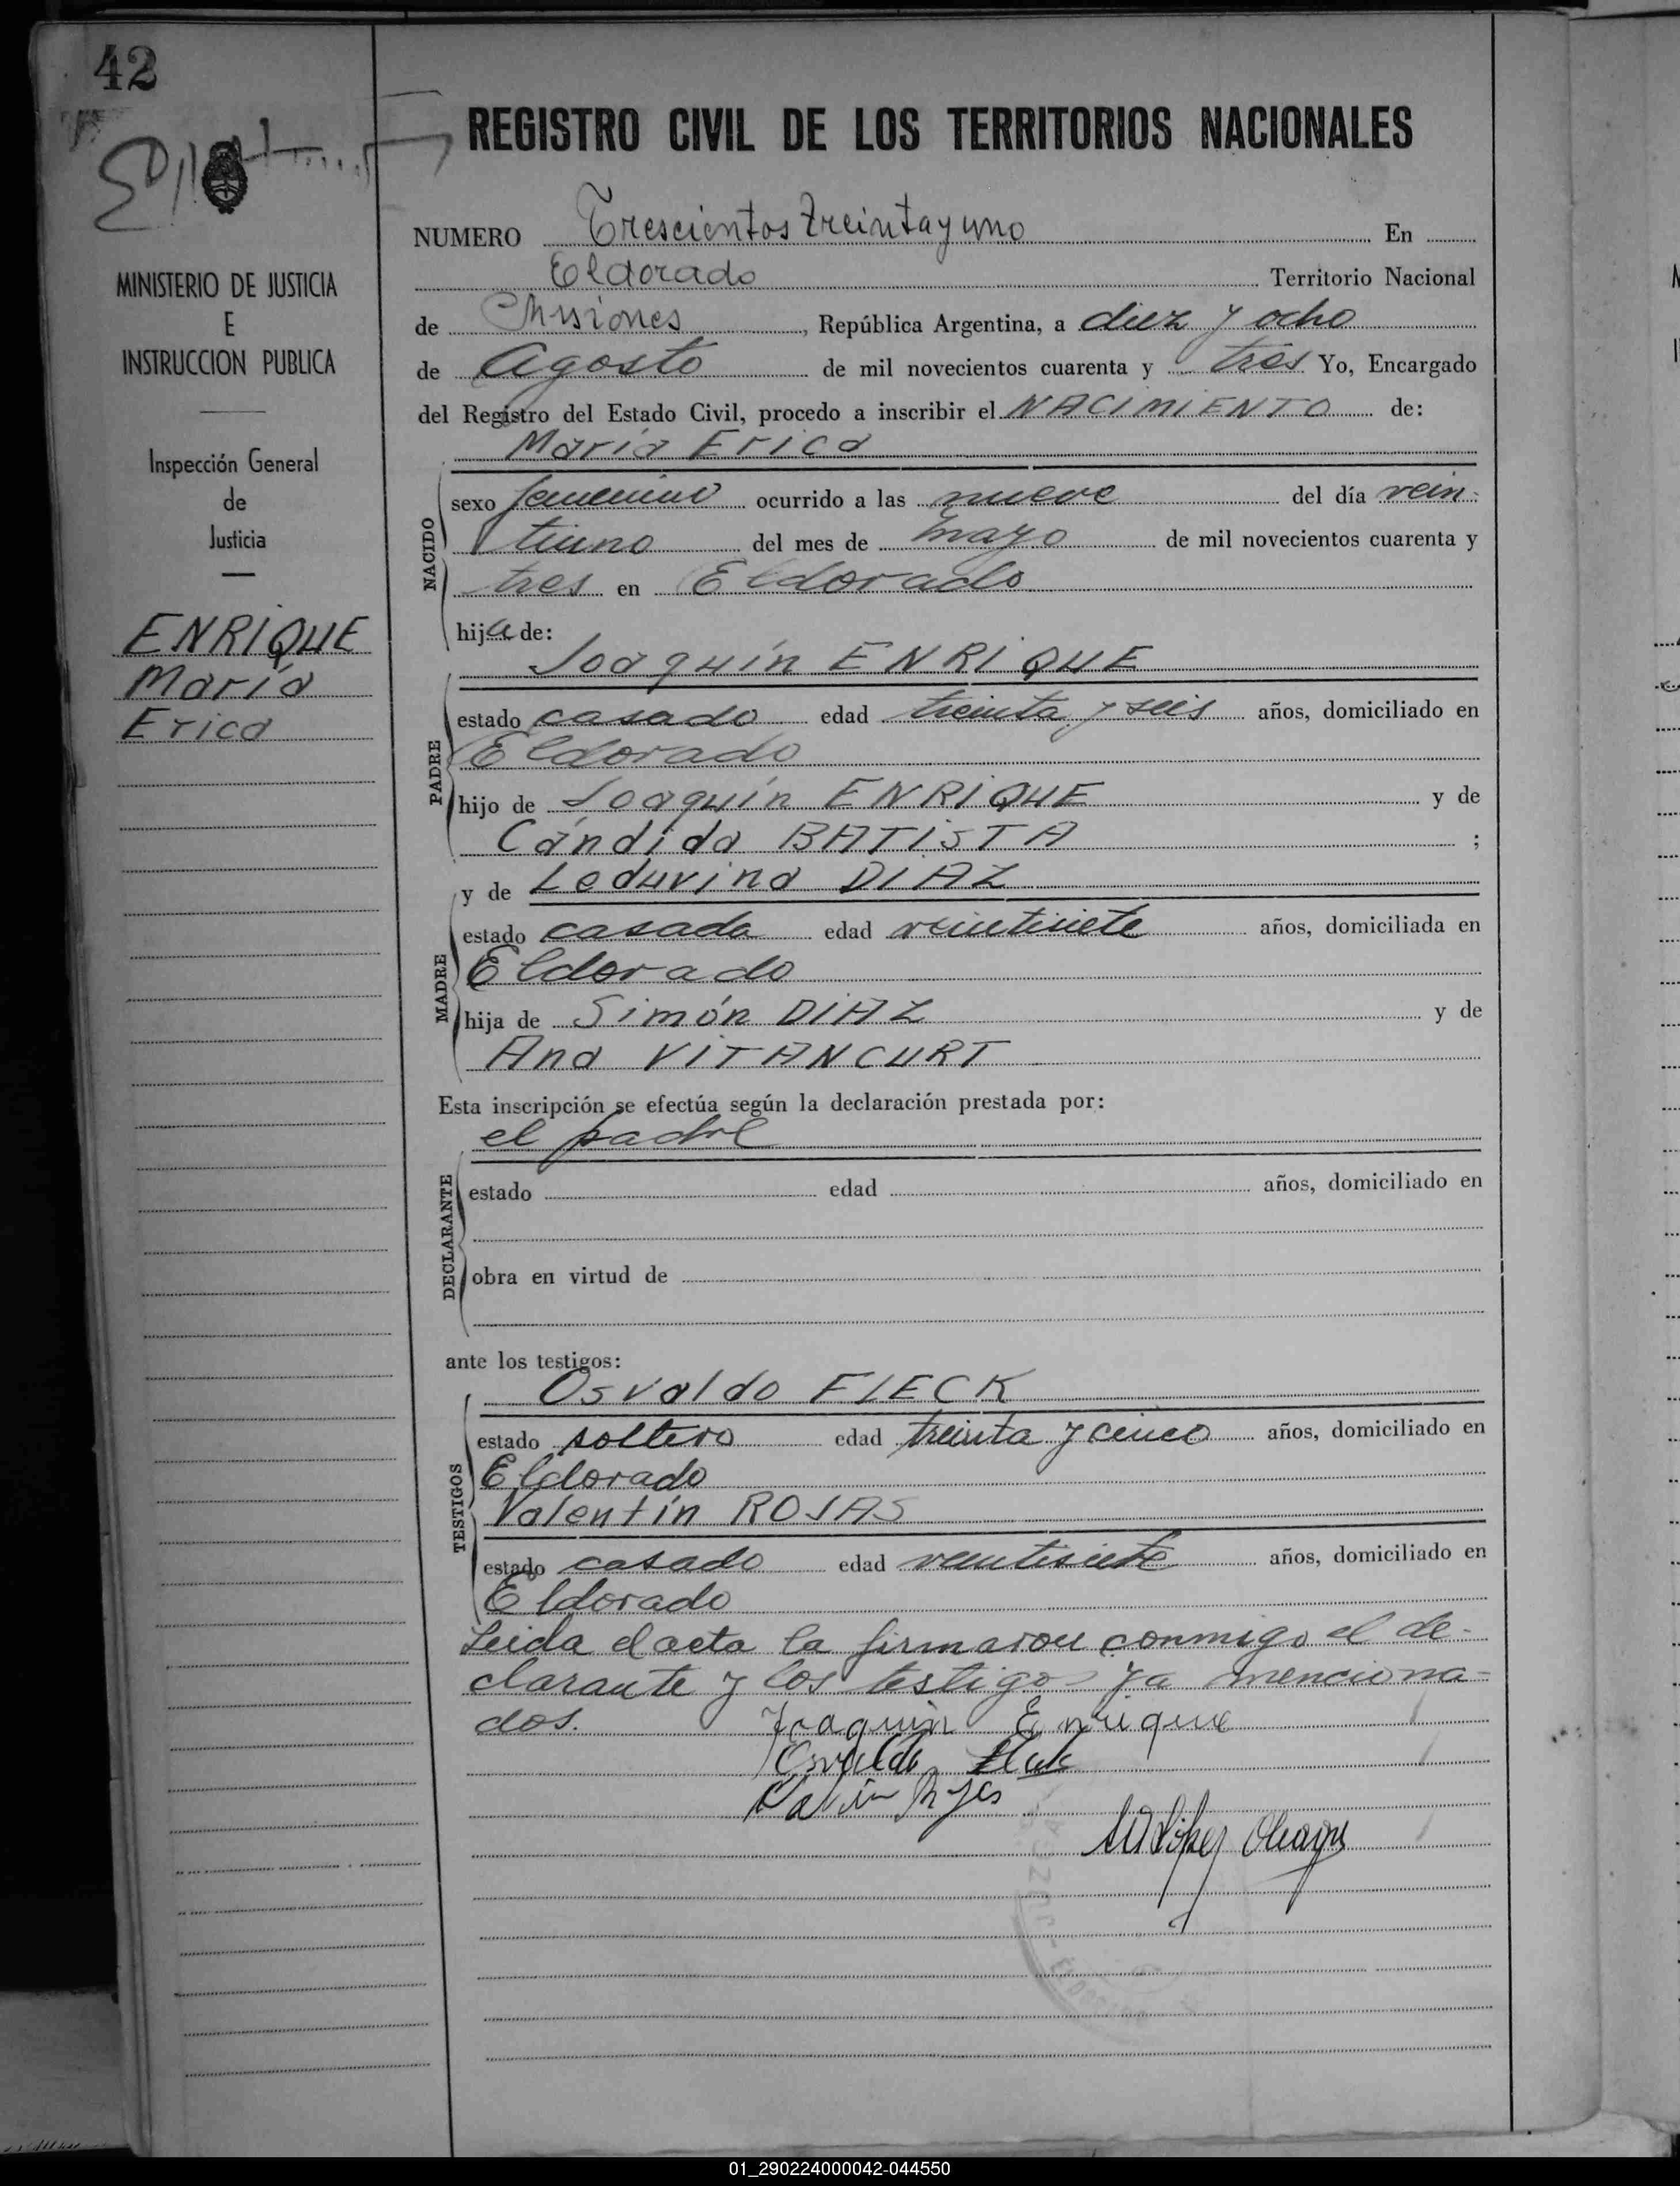 42
REGISTRO CIVIL DE LOS TERRITORIOS NACIONALES
MINISTERIO DE JUSTICIA
E
INSTRUCCION PUBLICA
Inspección General
de
Justicia
ENRIQUE
María
Erica
NUMERO Trescientos treinta y uno En
Eldorado Territorio Nacional
de Misiones, República Argentina, a diez y ocho
de Agosto de mil novecientos cuarenta y tres Yo, Encargado
del Registro del Estado Civil, procedo a inscribir el NACIMIENTO de:
María Erica
NACIDO
sexo femenino ocurrido a las nueve del día vein-
tiuno del mes de mayo de mil novecientos cuarenta y
tres en Eldorado
hija de:
Joaquín ENRIQUE
PADRE
estado casado edad treinta y seis años, domiciliado en
Eldorado
hijo de Joaquín ENRIQUE y de
Cándida BATISTA ;
y de Leduvina DIAZ
MADRE
estado casada edad veintisiete años, domiciliada en
Eldorado
hija de Simón DIAZ y de
Ana VITANCURT
Esta inscripción se efectúa según la declaración prestada por:
el padre
DECLARANTE
estado edad años, domiciliado en
obra en virtud de
ante los testigos:
Osvaldo FLECK
TESTIGOS
estado soltero edad treinta y cinco años, domiciliado en
Eldorado
Valentín ROJAS
estado casado edad veintisiete años, domiciliado en
Eldorado
Leida el acta la firmaron conmigo el de-
clarante y los testigo ya menciona-
dos. Joaquin Enrique
Osvaldo Fleck
01_290224000042-044550